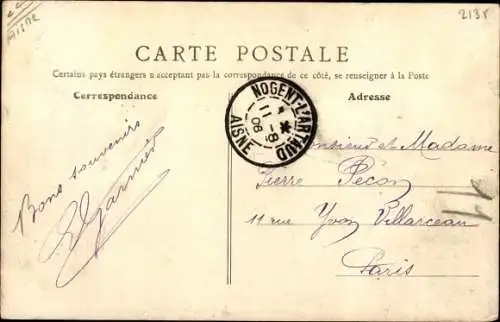 Aisne
2135
CARTE POSTALE
Certains pays étrangers n'acceptant pas la correspondance de ce côté, se renseigner à la Poste
Correspondance
Adresse
NOGENT-L'ARTAUD
11 -8
06
AISNE
Bons souvenirs
Garnier
Monsieur et Madame
Pierre Pécon
11 rue Yvon Villarceau
Paris
11